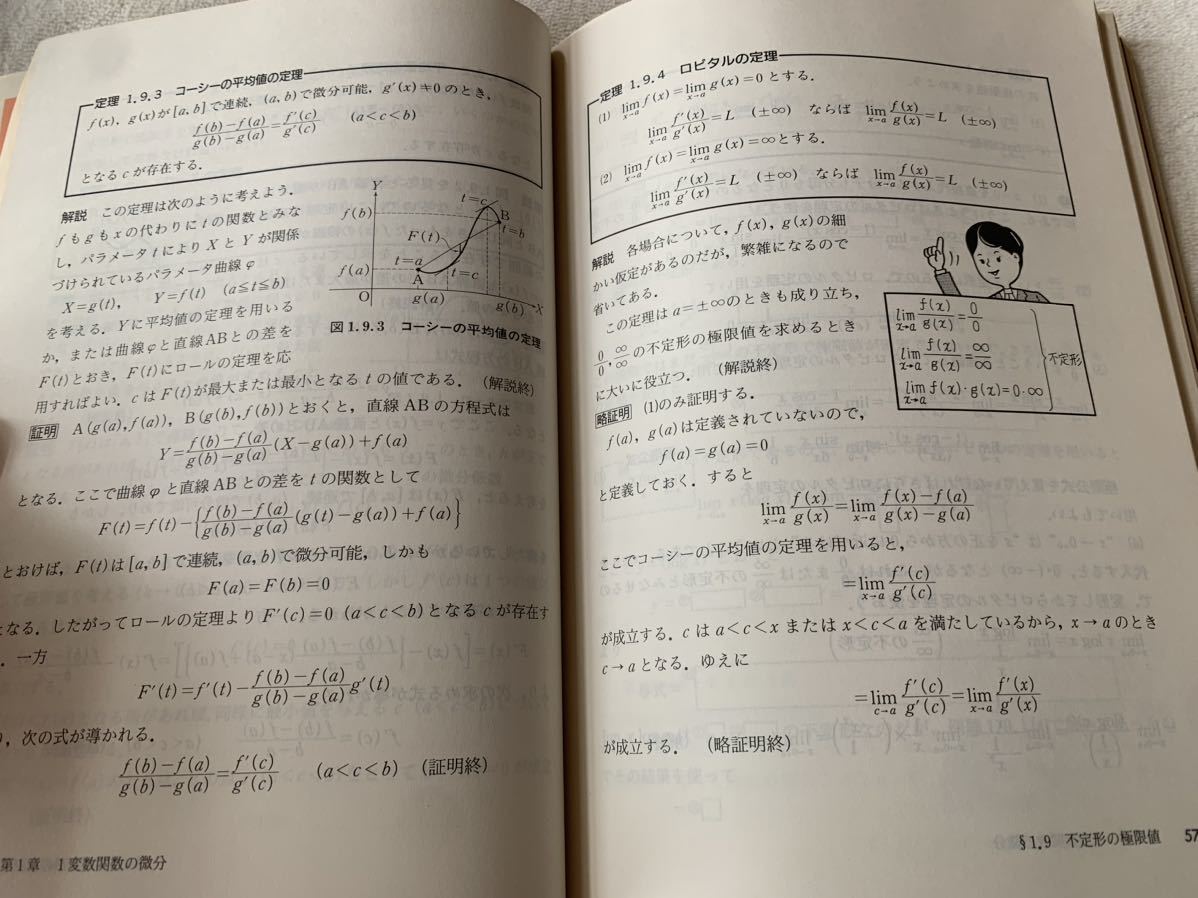 定理 1.9.3 コーシーの平均値の定理
f(x), g(x)が[a, b]で連続, (a, b)で微分可能, g′(x)≠0のとき,
(f(b)−f(a))/(g(b)−g(a))=f′(c)/g′(c) (a<c<b)
となるcが存在する.
解説 この定理は次のように考えよう.
fもgもxの代わりにtの関数とみな
し, パラメータtによりXとYが関係
づけられているパラメータ曲線φ
X=g(t), Y=f(t) (a≦t≦b)
を考える. Yに平均値の定理を用いる
か, または曲線φと直線ABとの差を
F(t)とおき, F(t)にロールの定理を応
用すればよい. cはF(t)が最大または最小となるtの値である. (解説終)
Y
f(b)
f(a)
O
g(a)
g(b)
X
t=c
B
t=b
F(t)
t=a
A
t=c
図1.9.3 コーシーの平均値の定理
証明 A(g(a), f(a)), B(g(b), f(b))とおくと, 直線ABの方程式は
Y=(f(b)−f(a))/(g(b)−g(a))(X−g(a))+f(a)
となる. ここで曲線φと直線ABとの差をtの関数として
F(t)=f(t)−{(f(b)−f(a))/(g(b)−g(a))(g(t)−g(a))+f(a)}
とおけば, F(t)は[a, b]で連続, (a, b)で微分可能, しかも
F(a)=F(b)=0
となる. したがってロールの定理よりF′(c)=0 (a<c<b)となるcが存在す
. 一方
F′(t)=f′(t)−(f(b)−f(a))/(g(b)−g(a))g′(t)
, 次の式が導かれる.
(f(b)−f(a))/(g(b)−g(a))=f′(c)/g′(c) (a<c<b) (証明終)
第1章 1変数関数の微分
定理 1.9.4 ロピタルの定理
(1) lim x→a f(x)=lim x→a g(x)=0とする.
lim x→a f′(x)/g′(x)=L (±∞) ならば lim x→a f(x)/g(x)=L (±∞)
(2) lim x→a f(x)=lim x→a g(x)=∞とする.
lim x→a f′(x)/g′(x)=L (±∞) ならば lim x→a f(x)/g(x)=L (±∞)
解説 各場合について, f(x), g(x)の細
かい仮定があるのだが, 繁雑になるので
省いてある.
この定理はa=±∞のときも成り立ち,
0/0, ∞/∞の不定形の極限値を求めるとき
に大いに役立つ. (解説終)
lim x→a f(x)/g(x)=0/0
lim x→a f(x)/g(x)=∞/∞
lim x→a f(x)·g(x)=0·∞
不定形
略証明 (1)のみ証明する.
f(a), g(a)は定義されていないので,
f(a)=g(a)=0
と定義しておく. すると
lim x→a f(x)/g(x)=lim x→a (f(x)−f(a))/(g(x)−g(a))
ここでコーシーの平均値の定理を用いると,
=lim x→a f′(c)/g′(c)
が成立する. cはa<c<xまたはx<c<aを満たしているから, x→aのとき
c→aとなる. ゆえに
=lim c→a f′(c)/g′(c)=lim x→a f′(x)/g′(x)
が成立する. (略証明終)
§1.9 不定形の極限値 57